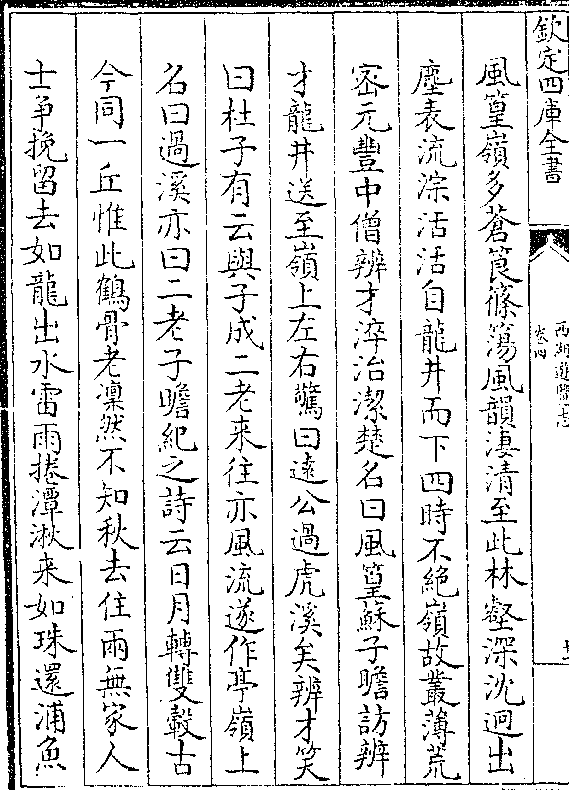 欽定四庫全書
西湖遊覽志
卷四
風篁嶺多蒼筤篠簜風韻淒清至此林壑深沈迥出
塵表流淙活活自龍井而下四時不絕嶺故叢薄荒
密元豐中僧辨才淬治潔楚名曰風篁蘇子瞻訪辨
才龍井送至嶺上左右驚曰遠公過虎溪矣辨才笑
曰杜子有云與子成二老来往亦風流遂作亭嶺上
名曰過溪亦曰二老子瞻紀之詩云日月轉雙轂古
今同一丘惟此鶴骨老凜然不知秋去住雨無家人
士争挽留去如龍出水雷雨捲潭湫来如珠還浦魚